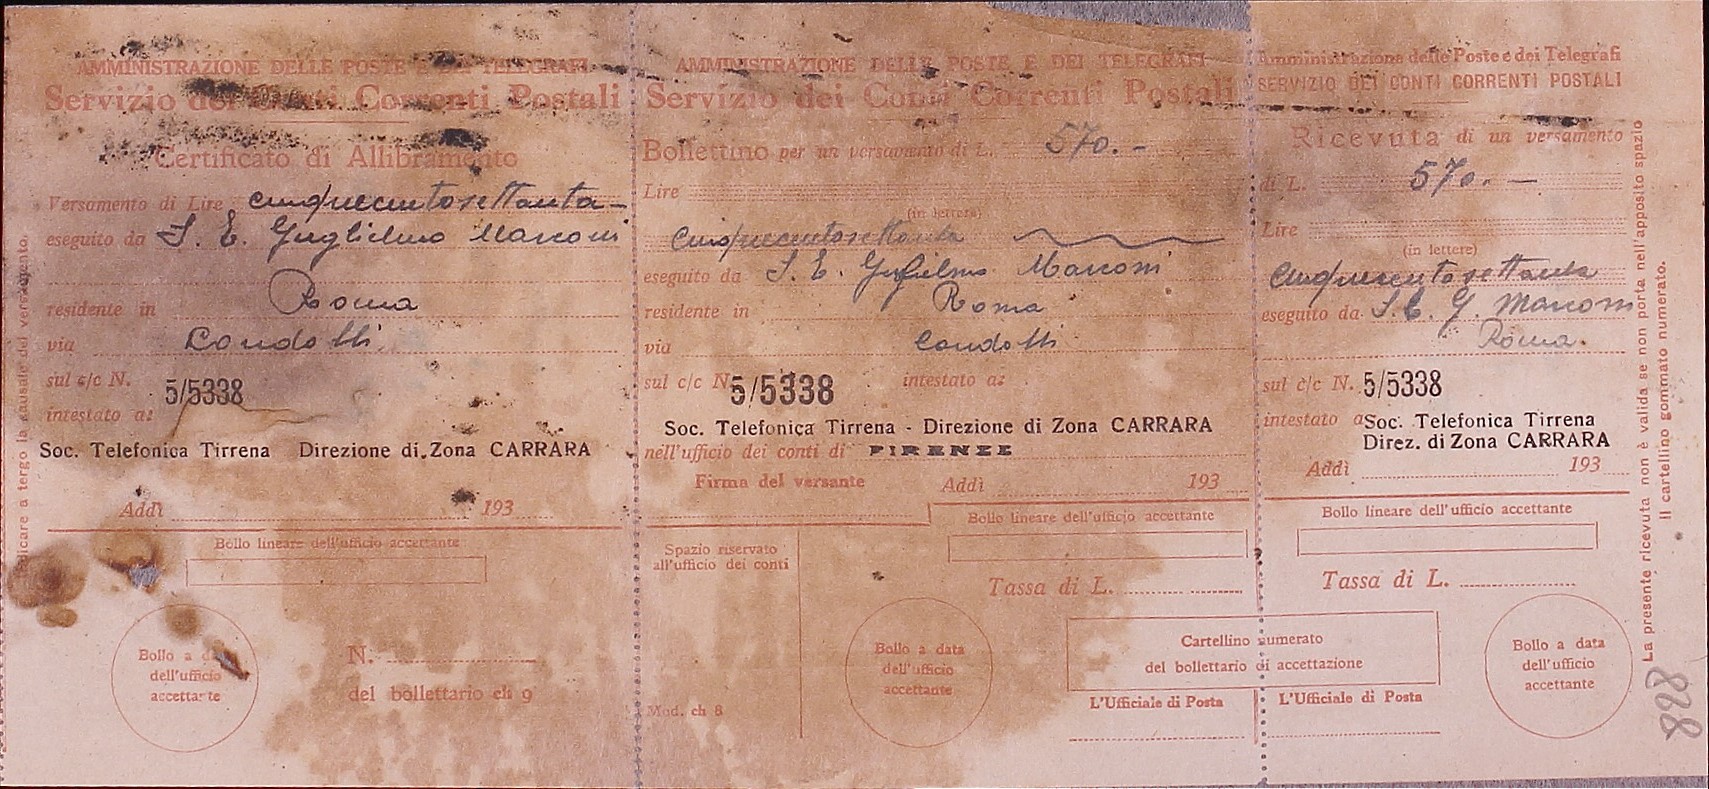 AMMINISTRAZIONE DELLE POSTE E DEI TELEGRAFI
Servizio dei Conti Correnti Postali
Certificato di Allibramento
Versamento di Lire cinquecentosettanta -
eseguito da S. E. Guglielmo Marconi
residente in Roma
via Condotti
sul c/c N. 5/5338
intestato a:
Soc. Telefonica Tirrena Direzione di Zona CARRARA
Addì 193
Bollo lineare dell'ufficio accettante
Bollo a data
dell'ufficio
accettante
N.
del bollettario ch 9
AMMINISTRAZIONE DELLE POSTE E DEI TELEGRAFI
Servizio dei Conti Correnti Postali
Bollettino per un versamento di L. 570. -
Lire
(in lettere)
Cinquecentosettanta
eseguito da S. E. Guglielmo Marconi
residente in Roma
via Condotti
sul c/c N. 5/5338 intestato a:
Soc. Telefonica Tirrena - Direzione di Zona CARRARA
nell'ufficio dei conti di FIRENZE
Firma del versante
Addì 193
Bollo lineare dell'ufficio accettante
Spazio riservato
all'ufficio dei conti
Tassa di L.
Bollo a data
dell'ufficio
accettante
Mod. ch 8
Cartellino numerato
del bollettario di accettazione
L'Ufficiale di Posta
Amministrazione delle Poste e dei Telegrafi
SERVIZIO DEI CONTI CORRENTI POSTALI
Ricevuta di un versamento
di L. 570. -
Lire
(in lettere)
Cinquecentosettanta
eseguito da S. E. G. Marconi
Roma.
sul c/c N. 5/5338
intestato a Soc. Telefonica Tirrena
Direz. di Zona CARRARA
Addì 193
Bollo lineare dell'ufficio accettante
Tassa di L.
L'Ufficiale di Posta
Bollo a data
dell'ufficio
accettante
La presente ricevuta non è valida se non porta nell'apposito spazio
il cartellino gommato numerato.
828